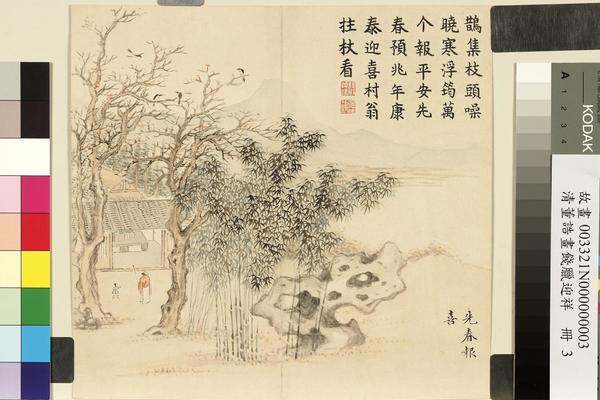 鵲集枝頭噪
曉寒浮筠萬
个報平安先
春預兆年康
泰迎喜村翁
拄杖看
先春報
喜
KODAK
A 1 2 3 4
故畫 003321N000000003
清董誥畫餞臘迎祥 冊 3